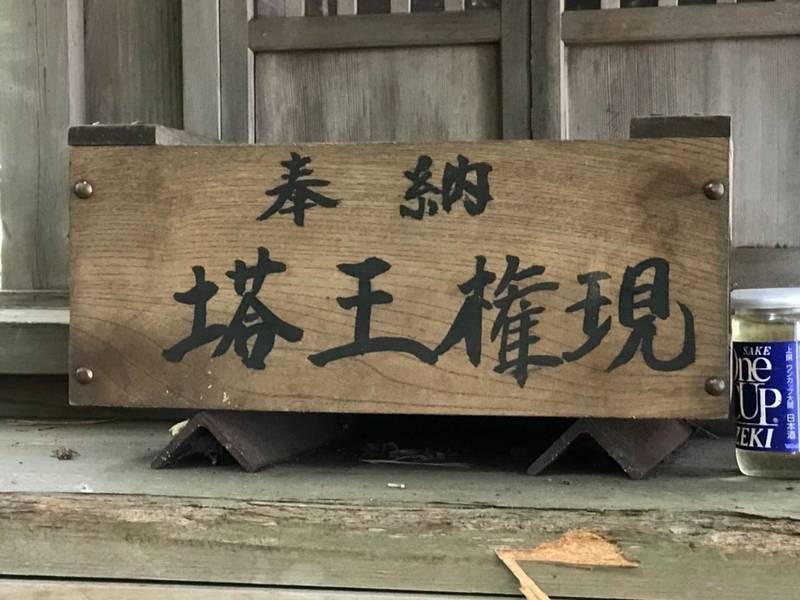 奉納
塔王権現
SAKE
One
CUP
ZEKI
上撰 ワンカップ大関
日本酒